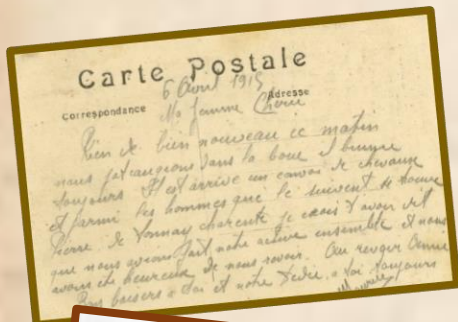 Carte Postale
6 Avril 1915
Correspondance Adresse
Ma Jeanne Cherie
Rien de bien nouveau ce matin
nous pataugeons dans la boue il brume
toujours Il est arrivé un convoi de chevaux
et parmi les hommes que le suivent se trouve
Pierre de Tonnay charente je crois t avoir dit
que nous avions fait notre active ensemble et nous
avons été heureux de nous revoir. Au revoir Cherie
Bons baisers a toi et notre Dédée a toi toujours
Maurice